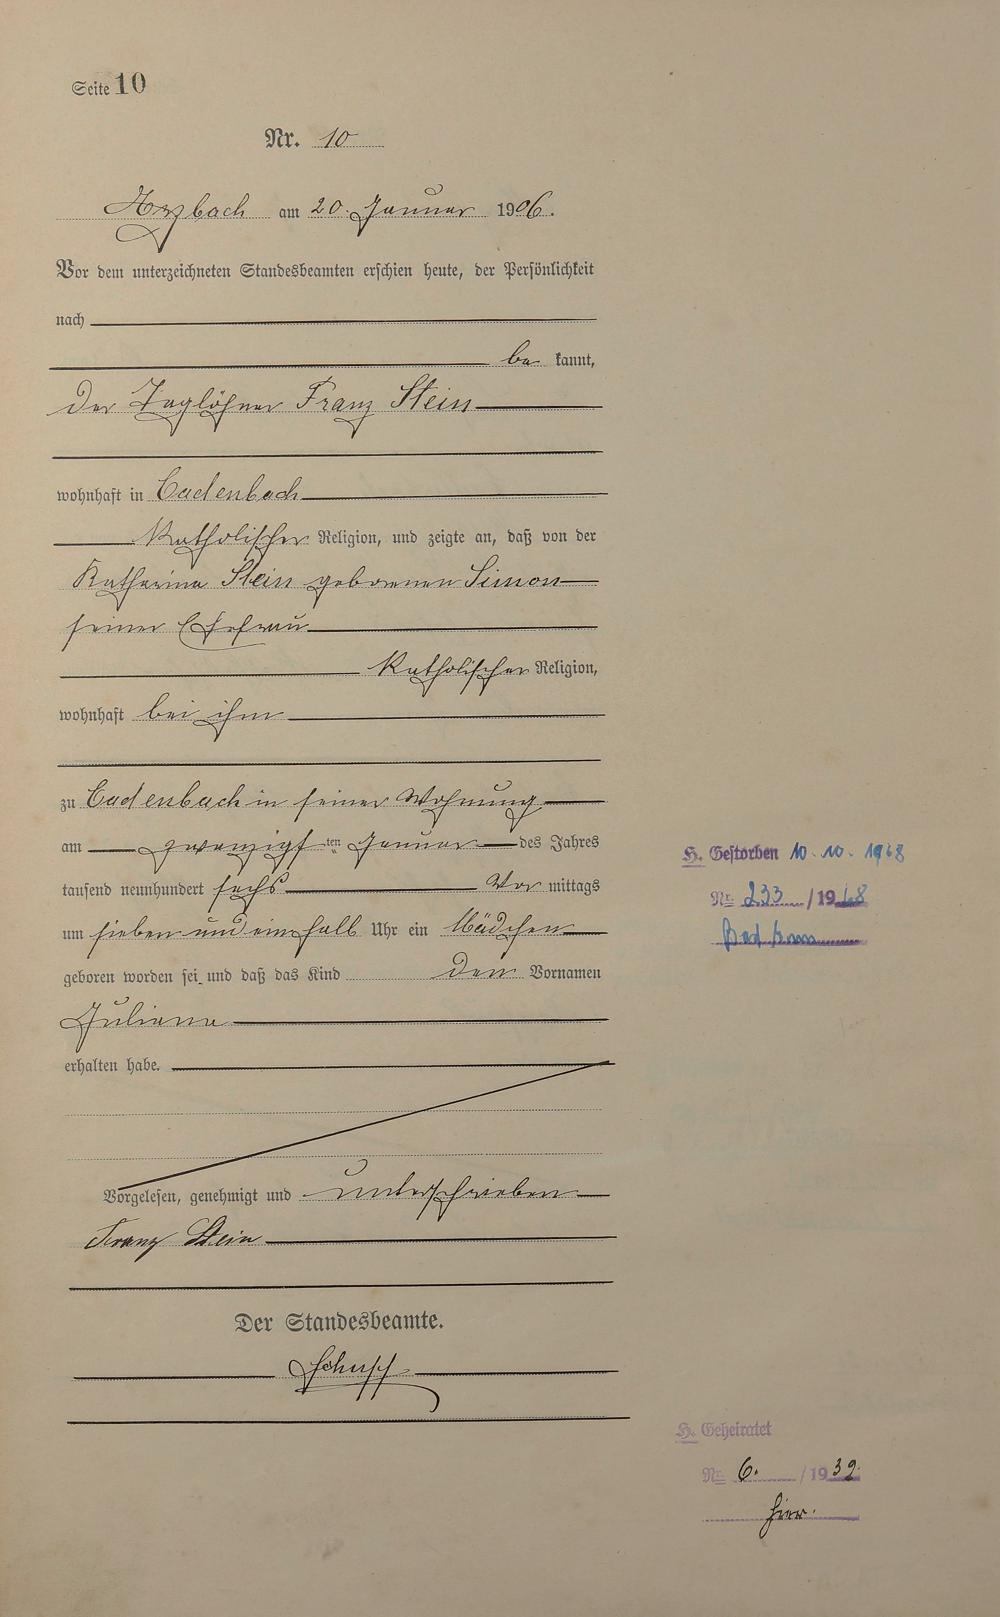 Seite 10
Nr. 10
Arzbach am 20. Januar 1906.
Vor dem unterzeichneten Standesbeamten erschien heute, der Persönlichkeit
nach
be kannt,
der Taglöhner Franz Stein
wohnhaft in Cadenbach
katholischer Religion, und zeigte an, daß von der
Katharina Stein geborenen Simon
seiner Ehefrau
katholischer Religion,
wohnhaft bei ihm
zu Cadenbach in seiner Wohnung
am zwanzigsten Januar des Jahres
tausend neunhundert sechs Vor mittags
um sieben und einhalb Uhr ein Mädchen
geboren worden sei und daß das Kind den Vornamen
Juliana
erhalten habe.
Vorgelesen, genehmigt und unterschrieben
Franz Stein
Der Standesbeamte.
H. Gestorben 10.10.1968
Nr. 233 /1968
Bad Ems
H. Geheiratet
Nr. 6. /1939.
hier.